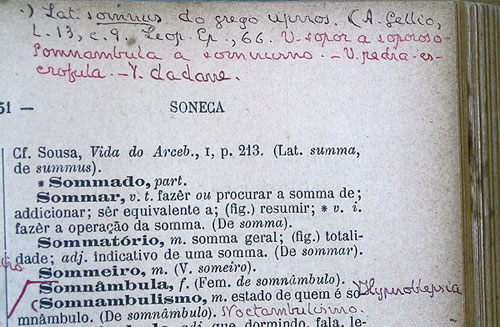 ·) Lat. sommus do grego upnos. (A. Gellio,
L. 13, c. 9. Leop. Ep., 66. V. sopor a soporoso-
somnambula a somnurno. – V. pedra-es-
crofula. – V. dadane.
51 — SONECA
Cf. Sousa, Vida do Arceb., I, p. 213. (Lat. summa,
de summus).
* Sommado, part.
Sommar, v. t. fazêr ou procurar a somma de;
addicionar; sêr equivalente a; (fig.) resumir; * v. i.
fazêr a operação da somma. (De somma).
Sommatório, m. somma geral; (fig.) totali-
dade; adj. indicativo de uma somma. (De sommar).
Sommeiro, m. (V. someiro).
Somnâmbula, f. (Fem. de somnâmbulo). Hypnoblepsia
Somnambulismo, m. estado de quem é so-
mnâmbulo. (De somnâmbulo). Noctambulismo.
adj. que, dormindo, fala, le-